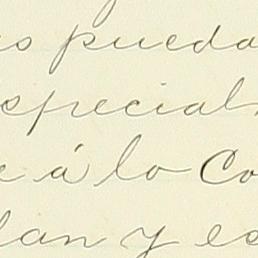 os pueda
special
e á lo Co
lan y es